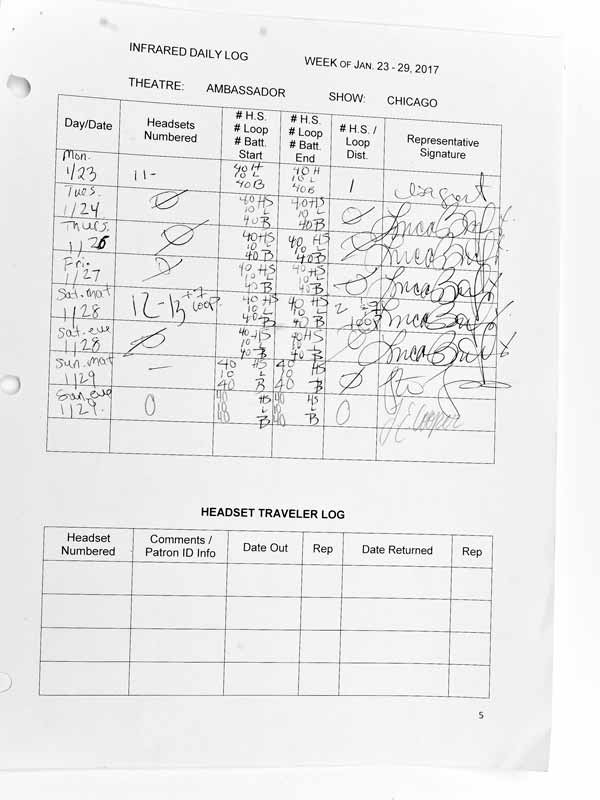 INFRARED DAILY LOG WEEK OF JAN. 23 - 29, 2017
THEATRE: AMBASSADOR SHOW: CHICAGO
Day/Date
Headsets
Numbered
# H.S.
# Loop
# Batt.
Start
# H.S.
# Loop
# Batt.
End
# H.S. /
Loop
Dist.
Representative
Signature
Mon.
1/23
11-
40 H
10 L
40 B
40 H
10 L
40 B
1
Tues.
1/24
Ø
40 HS
10 L
40 B
40 HS
10 L
40 B
Ø
Thurs.
1/26
Ø
40 HS
10 L
40 B
40 HS
10 L
40 B
Ø
Fri.
1/27
Ø
40 HS
10 L
40 B
40 HS
10 L
40 B
Ø
Sat. mat
1/28
12-13
Loop
40 HS
10 L
40 B
40 HS
10 L
40 B
2
loop
Sat. eve
1/28
Ø
40 HS
10 L
40 B
40 HS
10 L
40 B
Sun. mat
1/29
—
40 HS
10 L
40 B
40 HS
10 L
40 B
Ø
Sun. eve
1/29.
0
40 HS
10 L
40 B
40 HS
10 L
40 B
0
J E Cooper
HEADSET TRAVELER LOG
Headset
Numbered
Comments /
Patron ID Info
Date Out
Rep
Date Returned
Rep
5